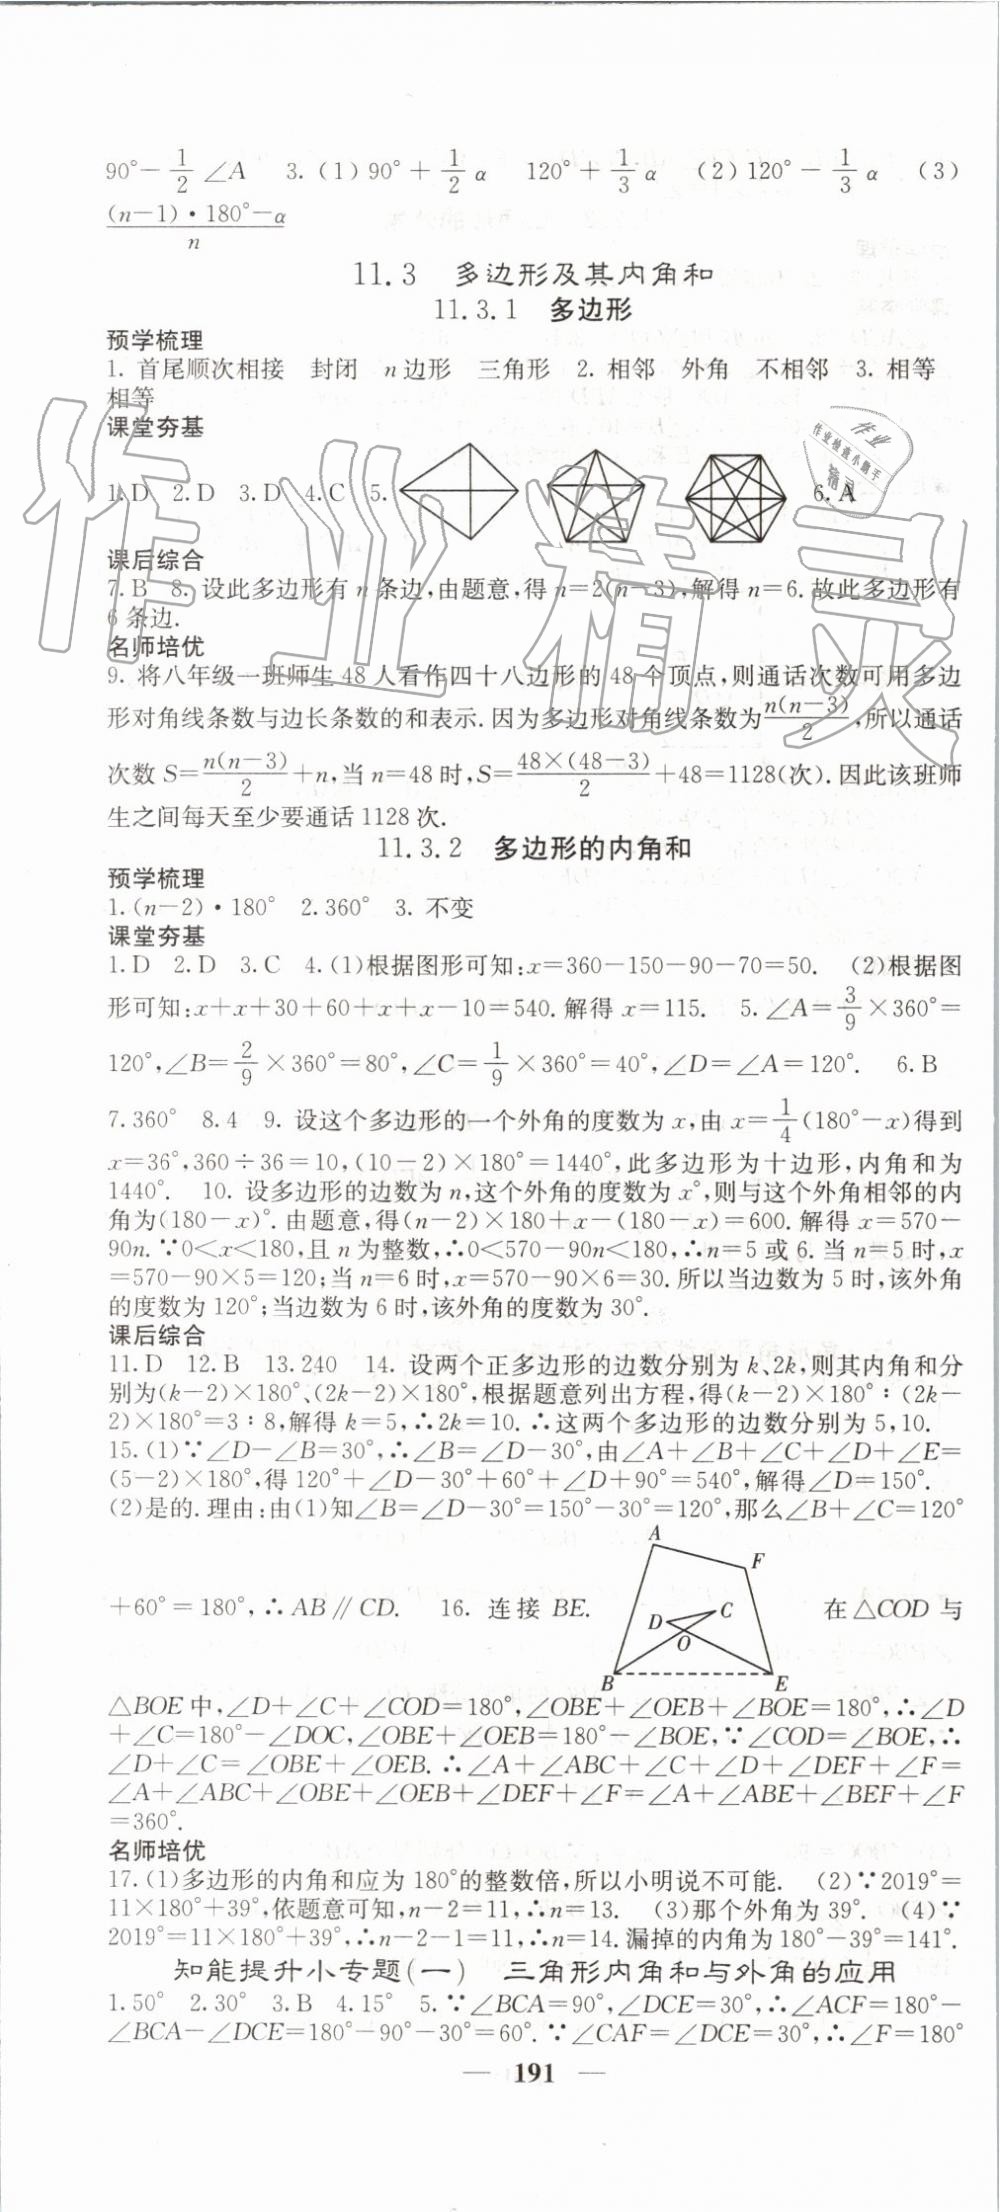 90°－1/2∠A　3.(1)90°＋1/2α　120°＋1/3α　(2)120°－1/3α　(3)
(n－1)·180°－α/n
11.3　多边形及其内角和
11.3.1　多边形
预学梳理
1. 首尾顺次相接　封闭　n边形　三角形　2. 相邻　外角　不相邻　3. 相等
相等
课堂夯基
1. D　2. D　3. D　4. C　5.　6. A
课后综合
7. B　8. 设此多边形有n条边,由题意,得n=2(n－3),解得n=6.故此多边形有
6条边.
名师培优
9. 将八年级一班师生48人看作四十八边形的48个顶点,则通话次数可用多边
形对角线条数与边长条数的和表示.因为多边形对角线条数为n(n－3)/2,所以通话
次数S=n(n－3)/2+n,当n=48时,S=48×(48－3)/2+48=1128(次).因此该班师
生之间每天至少要通话1128次.
11.3.2　多边形的内角和
预学梳理
1.(n－2)·180°　2.360°　3. 不变
课堂夯基
1. D　2. D　3. C　4.(1)根据图形可知:x=360－150－90－70=50.　(2)根据图
形可知:x+x+30+60+x+x－10=540.解得x=115.　5.∠A=3/9×360°=
120°,∠B=2/9×360°=80°,∠C=1/9×360°=40°,∠D=∠A=120°.　6. B
7.360°　8.4　9. 设这个多边形的一个外角的度数为x,由x=1/4(180°－x)得到
x=36°,360÷36=10,(10－2)×180°=1440°,此多边形为十边形,内角和为
1440°.　10. 设多边形的边数为n,这个外角的度数为x°,则与这个外角相邻的内
角为(180－x)°.由题意,得(n－2)×180+x－(180－x)=600.解得x=570－
90n.∵0<x<180,且n为整数,∴0<570－90n<180,∴n=5或6.当n=5时,x
=570－90×5=120;当n=6时,x=570－90×6=30.所以当边数为5时,该外角
的度数为120°;当边数为6时,该外角的度数为30°.
课后综合
11. D　12. B　13.240　14. 设两个正多边形的边数分别为k、2k,则其内角和分
别为(k－2)×180°、(2k－2)×180°,根据题意列出方程,得(k－2)×180°∶(2k－
2)×180°=3∶8,解得k=5,∴2k=10.∴这两个多边形的边数分别为5,10.
15.(1)∵∠D－∠B=30°,∴∠B=∠D－30°,由∠A+∠B+∠C+∠D+∠E=
(5－2)×180°,得120°+∠D－30°+60°+∠D+90°=540°,解得∠D=150°.
(2)是的.理由:由(1)知∠B=∠D－30°=150°－30°=120°,那么∠B+∠C=120°
A
F
+60°=180°,∴AB∥CD.　16. 连接BE.　D　C　O　在△COD与
B　E
△BOE中,∠D+∠C+∠COD=180°,∠OBE+∠OEB+∠BOE=180°,∴∠D
+∠C=180°－∠DOC,∠OBE+∠OEB=180°－∠BOE,∵∠COD=∠BOE,∴
∠D+∠C=∠OBE+∠OEB.∴∠A+∠ABC+∠C+∠D+∠DEF+∠F=
∠A+∠ABC+∠OBE+∠OEB+∠DEF+∠F=∠A+∠ABE+∠BEF+∠F
=360°.
名师培优
17.(1)多边形的内角和应为180°的整数倍,所以小明说不可能.　(2)∵2019°=
11×180°+39°,依题意可知,n－2=11,∴n=13.　(3)那个外角为39°.　(4)∵
2019°=11×180°+39°,∴n－2－1=11,∴n=14.漏掉的内角为180°－39°=141°.
知能提升小专题(一)　三角形内角和与外角的应用
1.50°　2.30°　3. B　4.15°　5.∵∠BCA=90°,∠DCE=30°,∴∠ACF=180°－
∠BCA－∠DCE=180°－90°－30°=60°.∵∠CAF=∠DCE=30°,∴∠F=180°
— 191 —
作业精灵
作业
作业检查小助手
精灵